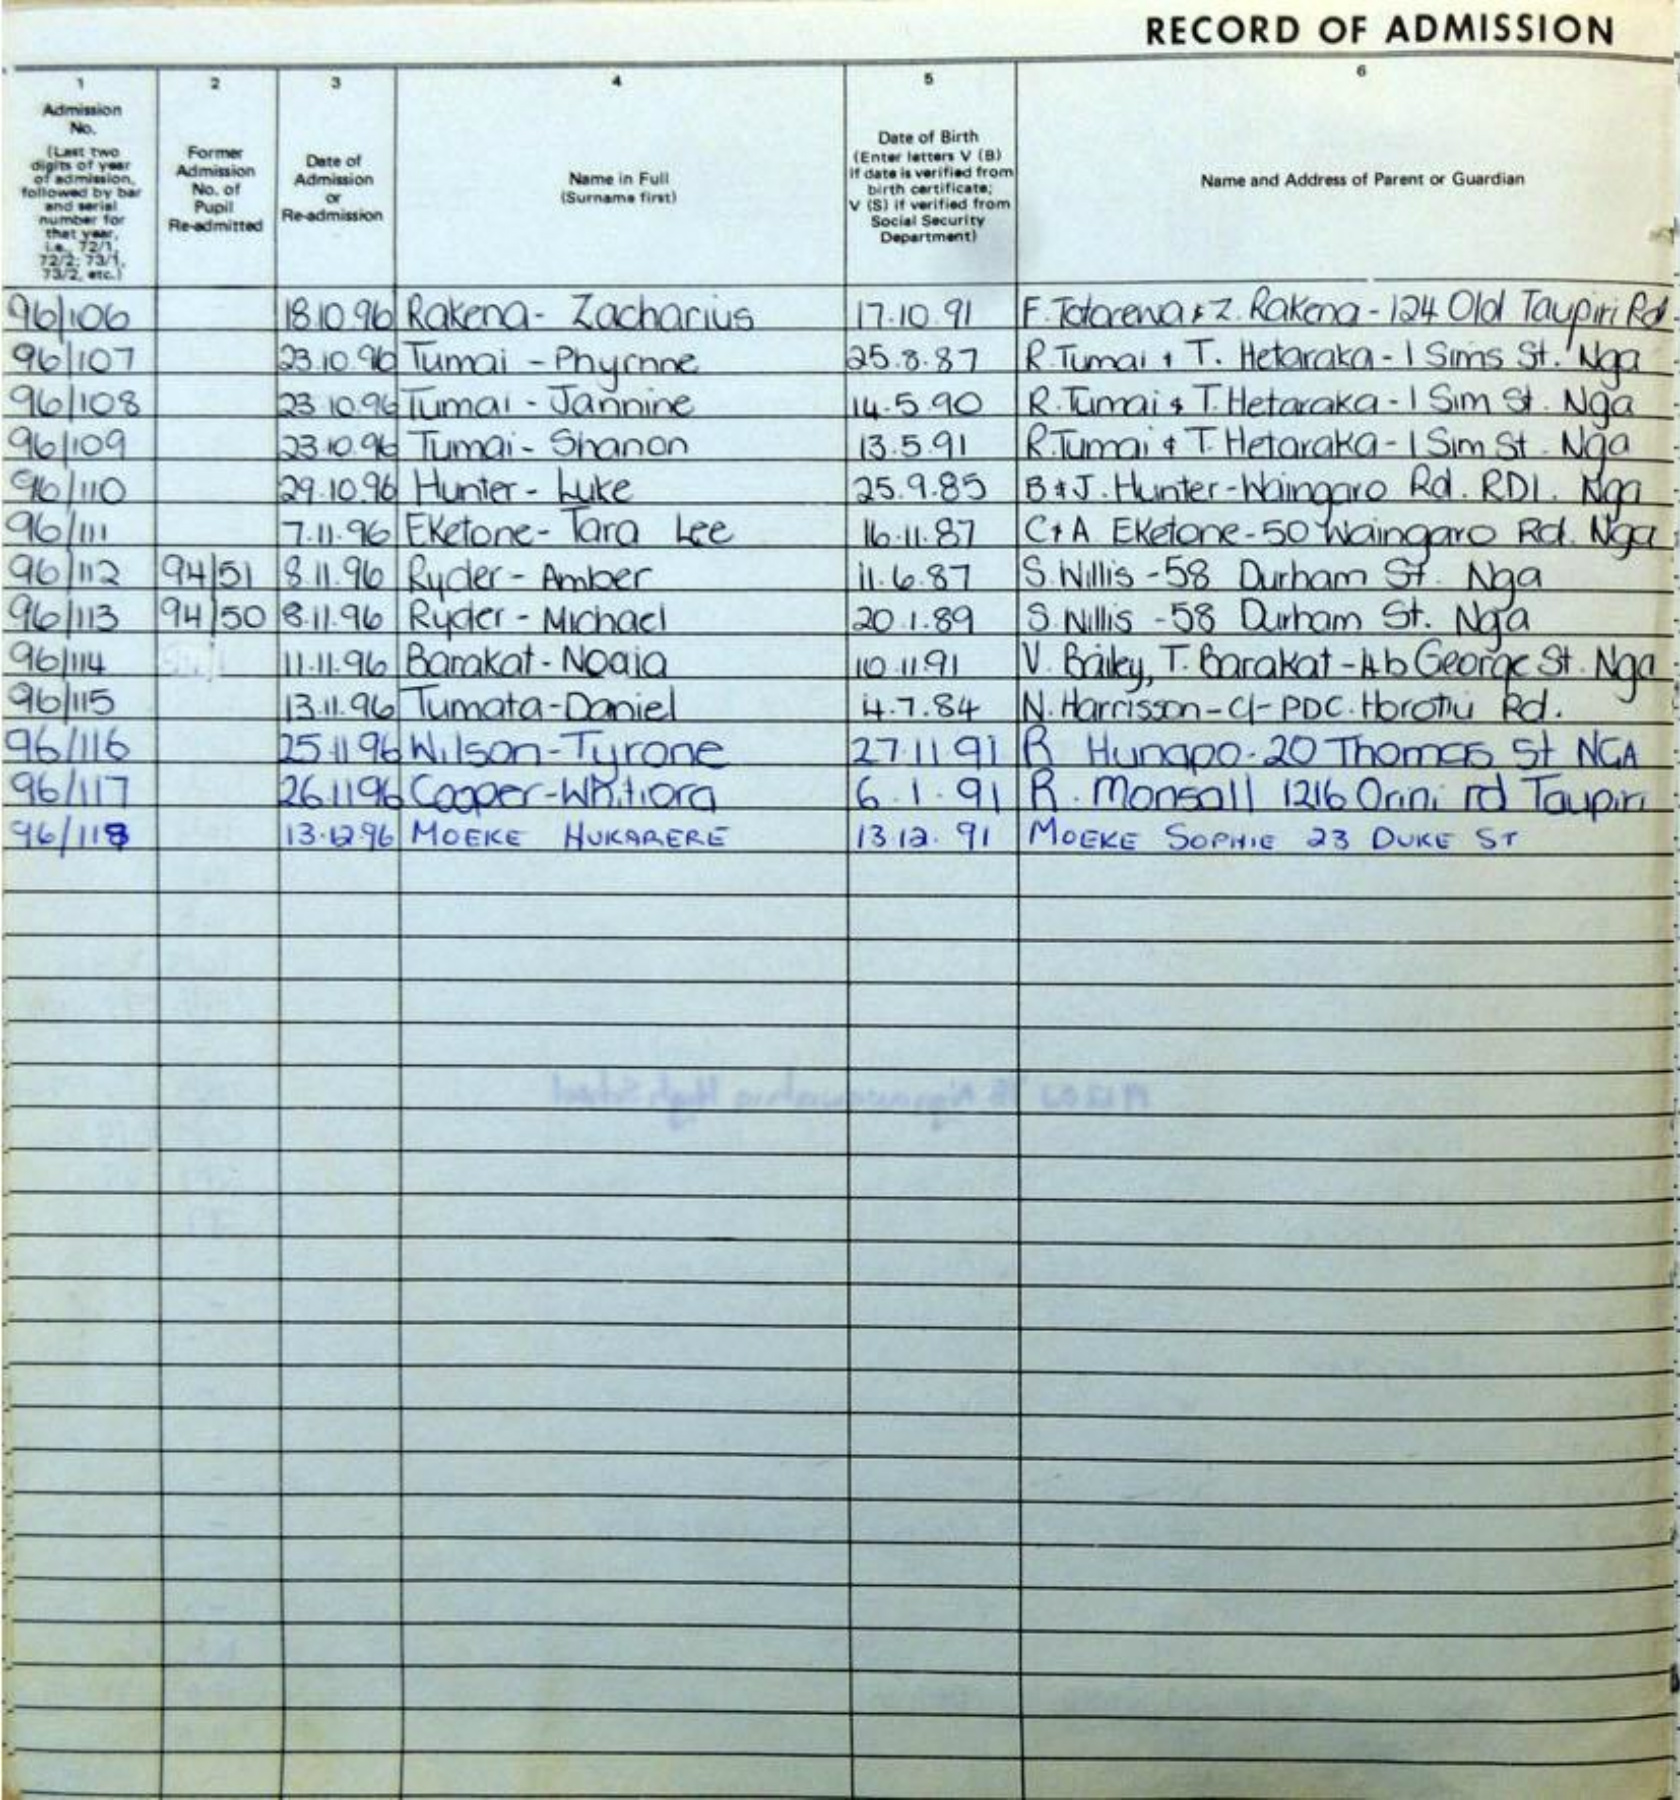 RECORD OF ADMISSION
1 2 3 4 5 6
Admission No. (Last two digits of year of admission, followed by bar and serial number for that year, i.e., 72/1, 72/2; 73/1, 73/2, etc.)
Former Admission No. of Pupil Re-admitted
Date of Admission or Re-admission
Name in Full (Surname first)
Date of Birth (Enter letters V (B) if date is verified from birth certificate; V (S) if verified from Social Security Department)
Name and Address of Parent or Guardian
96/106 18.10.96 Rakena - Zacharius 17.10.91 F. Totorewa & Z. Rakena - 124 Old Taupiri Rd.
96/107 23.10.96 Tumai - Phyrnne 25.8.87 R. Tumai & T. Hetaraka - 1 Sims St. Nga
96/108 23.10.96 Tumai - Jannine 14.5.90 R. Tumai & T. Hetaraka - 1 Sim St. Nga
96/109 23.10.96 Tumai - Shanon 13.5.91 R. Tumai & T. Hetaraka - 1 Sim St. Nga
96/110 29.10.96 Hunter - Luke 25.9.85 B & J. Hunter - Waingaro Rd. RD1. Nga
96/111 7.11.96 Eketone - Tara Lee 16.11.87 C + A Eketone - 50 Waingaro Rd. Nga
96/112 94/51 8.11.96 Ryder - Amber 11.6.87 S. Willis - 58 Durham St. Nga
96/113 94/50 8.11.96 Ryder - Michael 20.1.89 S. Willis - 58 Durham St. Nga
96/114 11.11.96 Barakat - Noaia 10.11.91 V. Bailey, T. Barakat - 4b George St. Nga
96/115 13.11.96 Tumata - Daniel 4.7.84 N. Harrisson - C/- PDC. Horotiu Rd.
96/116 25.11.96 Wilson - Tyrone 27.11.91 R Hunapo - 20 Thomas St NGA
96/117 26.11.96 Cooper - Whitiora 6.1.91 R. Monsall 1216 Orini rd Taupiri
96/118 13.12.96 MOEKE HUKARERE 13.12.91 MOEKE SOPHIE 23 DUKE ST